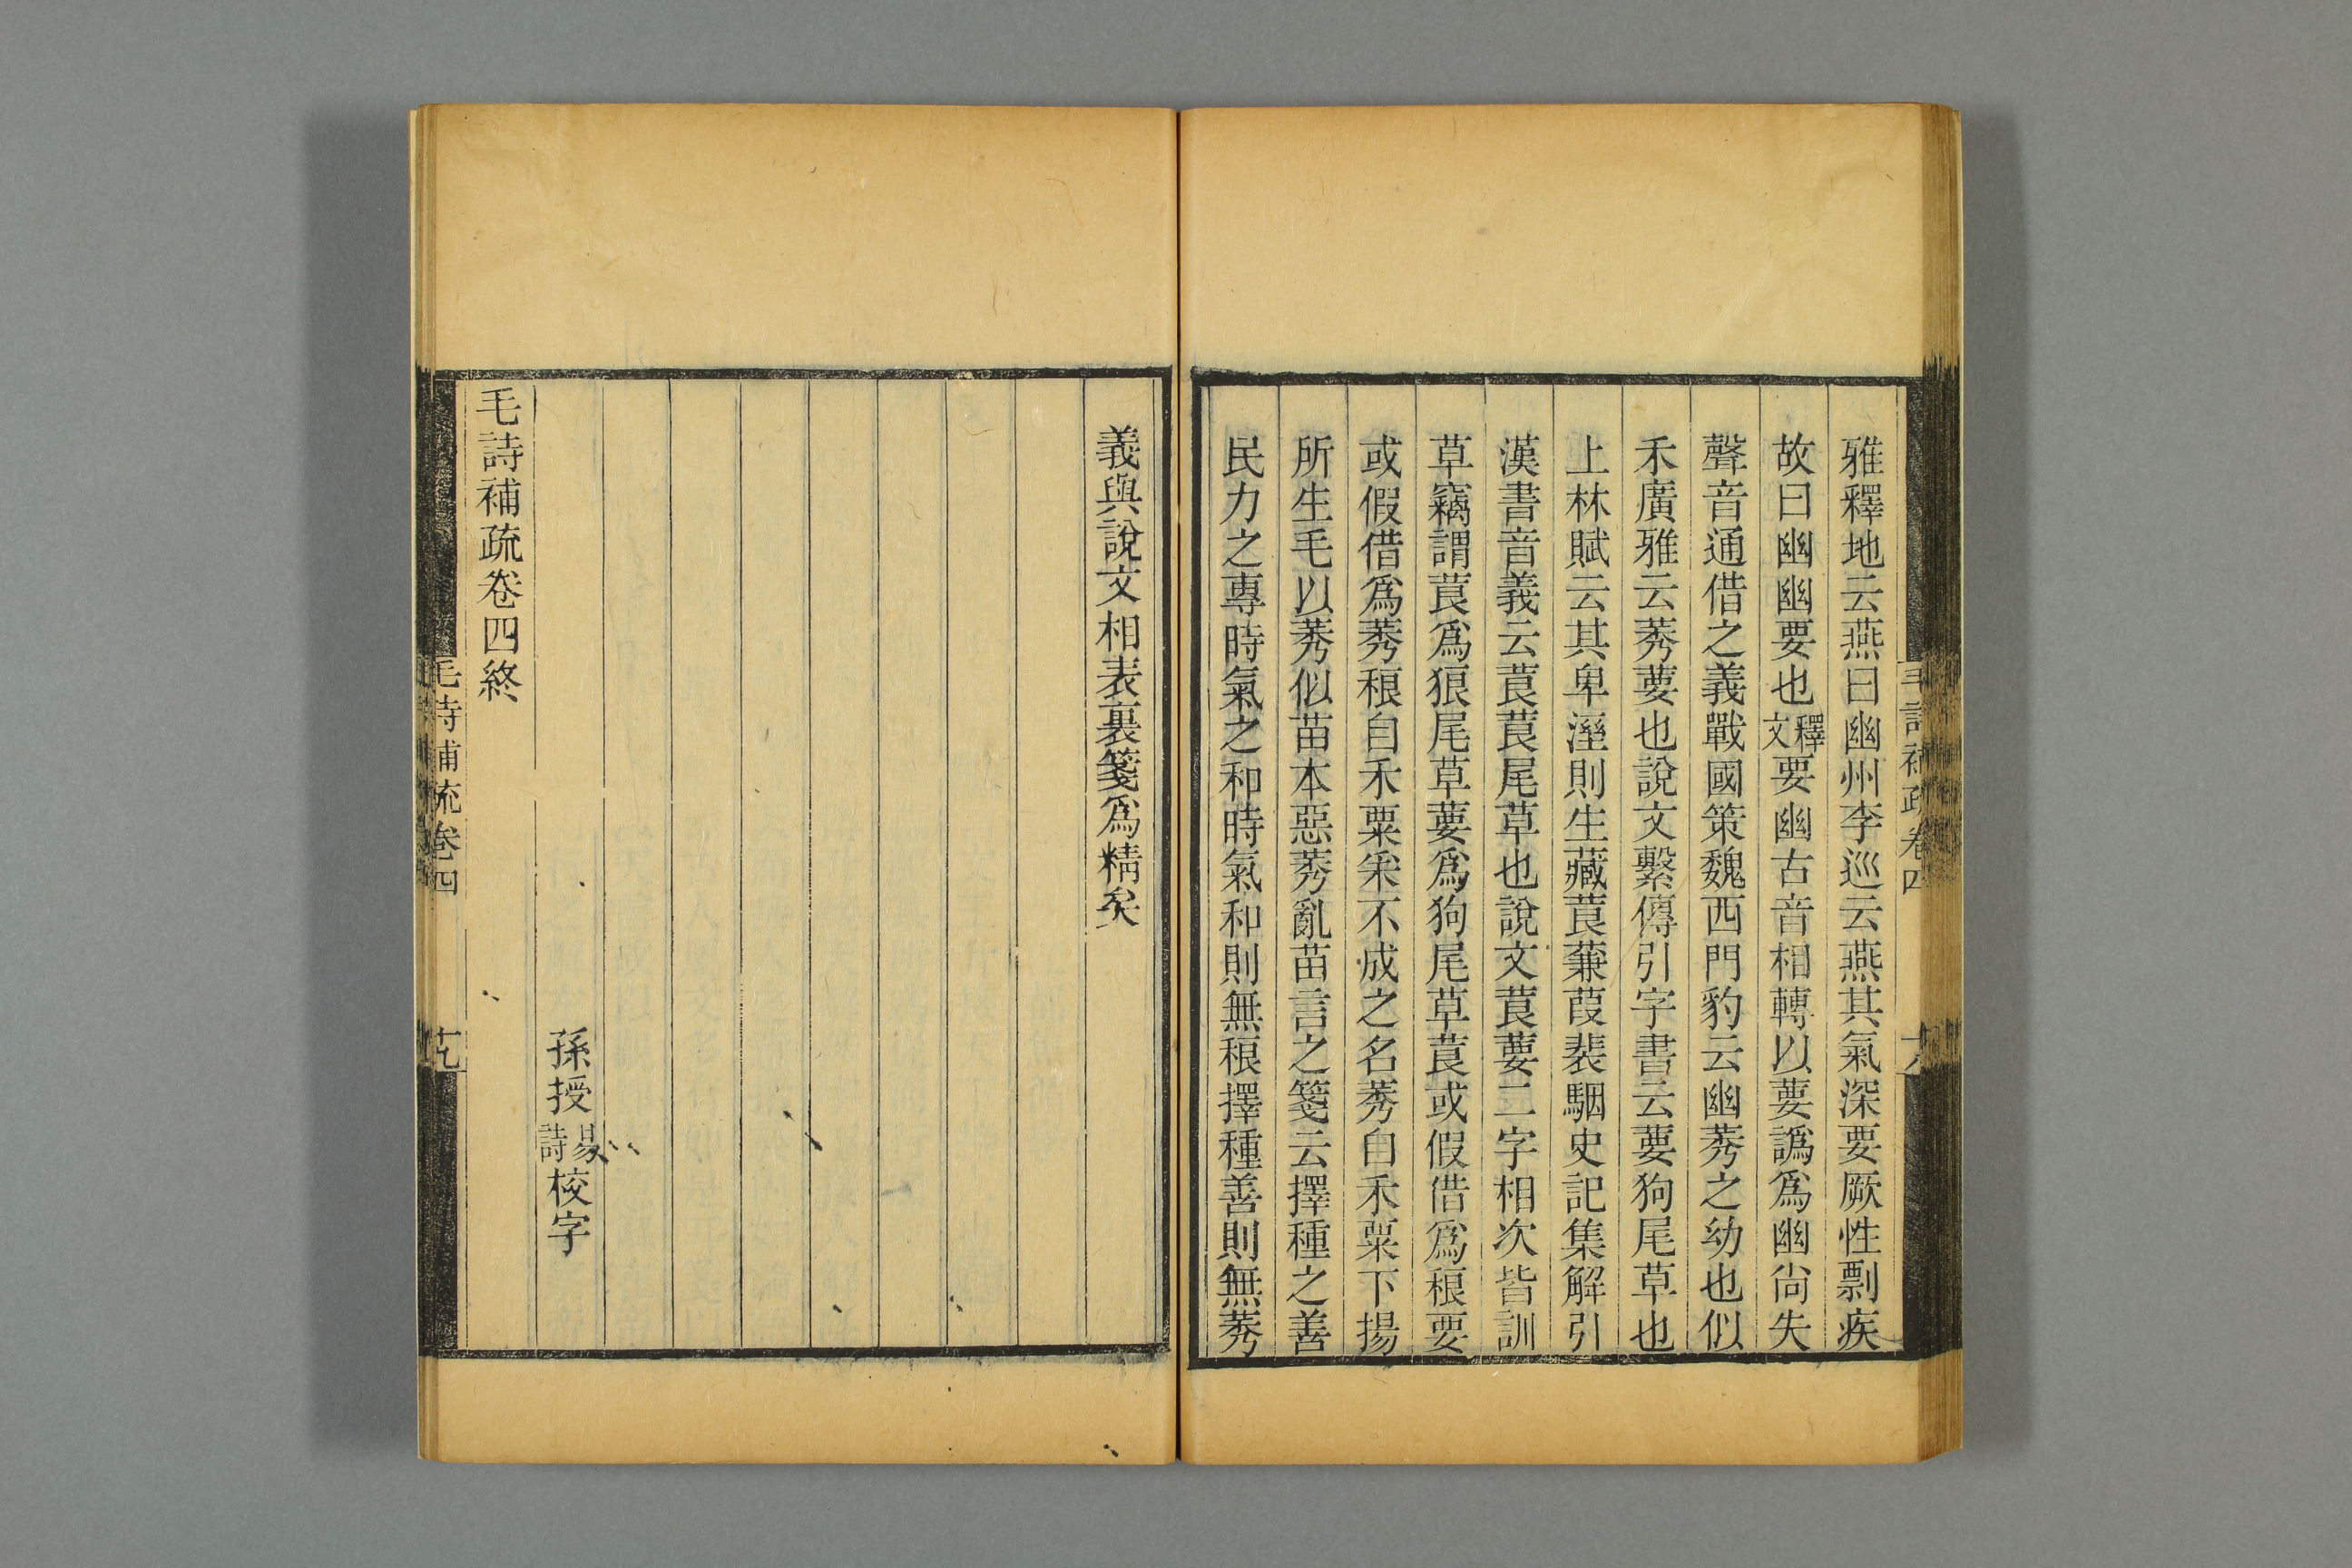 雅釋地云燕曰幽州李巡云燕其氣深要厥性剽疾
故曰幽幽要也釋文要幽古音相轉以葽譌爲幽尙失
聲音通借之義戰國策魏西門豹云幽莠之幼也似
禾廣雅云莠葽也說文繫傳引字書云葽狗尾草也
上林賦云其卑溼則生藏莨蒹葭裴駰史記集解引
漢書音義云莨莨尾草也說文莨葽二字相次皆訓
草竊謂莨爲狼尾草葽爲狗尾草莨或假借爲稂要
或假借爲莠稂自禾粟采不成之名莠自禾粟下揚
所生毛以莠似苗本惡莠亂苗言之箋云擇種之善
民力之專時氣之和時氣和則無稂擇種善則無莠
毛詩補疏卷四
十八
義與說文相表裏箋爲精矣
孫授易詩校字
毛詩補疏卷四終
毛詩補疏卷四
十九